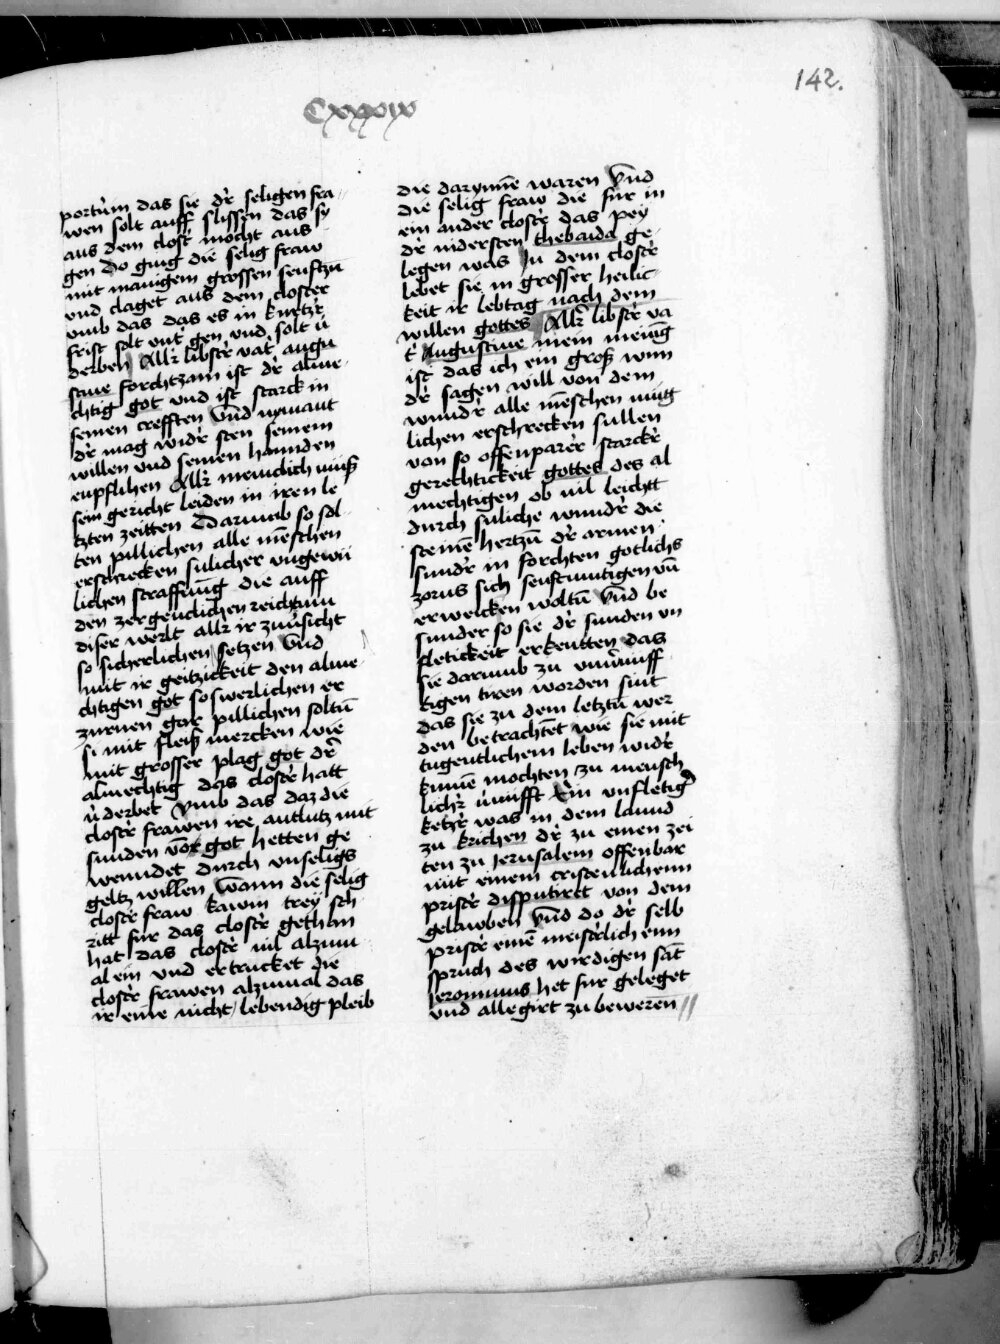 142.
Cxxxix
portům das sie dʼr seligen fra
wen solt auff slissen das sy
aus dem closʼt mocht aus
gen Do ging die selig fraw
mit manigem grossen seuftzū
vnd claget aus dem closter
vmb das das es in kurtzʼr
frist solt vntʼ gen vnd solt ů
derben Allʼr libstʼr vatʼ augu
stine forchtzam ist dʼr alme
chtig got vnd ist starck in
seinen crefften Vnd nymant
dʼr mag widʼr sten seinem
willen vnd seinen hannden
enpflihen Allʼr meniclich muß
sein gericht leiden in iren le
tzten zeitten Darumb so sol
ten pillichen alle mēschen
erschrecken sulicher vngewō
lichen straffūng die auff
den zergenclichen reichtum
diser werlt allʼr ir zuůsicht
so sicherlichen setzen Vnd
mit ir geitzickeit den alme
chtigen got so swerlichen er
zurnen gar pillichen soltū
si mit fleiß mercken wie
mit grosser plag got dʼr
almechtig das closʼtr hatt
ůderbet Vmb das daz die
closʼtr frawen ire antlutz mit
sunden vor got hetten ge
wendet durch vnseligs
geltz willen Wann die selig
closʼtr fraw kawm trey sch
ritt fur das closʼtr gethan
hat das closʼtr uil alzum
al ein vnd ertrucket die
closʼtr frawen alzumal das
ir eine nicht lebendig pleib
die darynnē waren Vnd
die selig fraw die fůr in
ein ander closʼtr das pey
dʼr nidersten thebaida ge
legen was Jn dem closʼtr
lebet sie in grosser heilic
keit ir lebtag nach dem
willen gottes Allʼr libstʼr va
tʼ Augustine mein meinūg
ist das ich ein groß wun
dʼr sagen will von dem
wundʼr alle mēschen mug
lichen erschrecken sullen
von so offenparʼr starckʼr
gerechtickeit gottes des al
mechtigen ob uil leichtt
durch suliche wundʼr die
steinē hertzū dʼr armen
sundʼr in forchten gotlichs
zorns sich senftmutigen vū
erweicken woltū Vnd be
sunder so sie dʼr sunden vn
fletickeit erkentten das
sie darumb zu vnůnuff
tigen tiren worden sint
das sie zu dem letztū wer
den betrachtet wie sie mit
tugentlichem leben widʼr
kumē mochten zu mensch
lichʼr ůnufft Ein vnfletigʼr
ketzʼr was in dem lannd
zu krichen dʼr zu einen zei
ten zu Jerusalem offenbar
mit einem cristenlichenn
pristʼr disputirct von dem
gelawben Vnd do dʼr selb
pristʼr einē meistʼrlich enn
spruch des wirdigen sāt
Jeronimus het fur geleget
vnd allegirt zu beweren